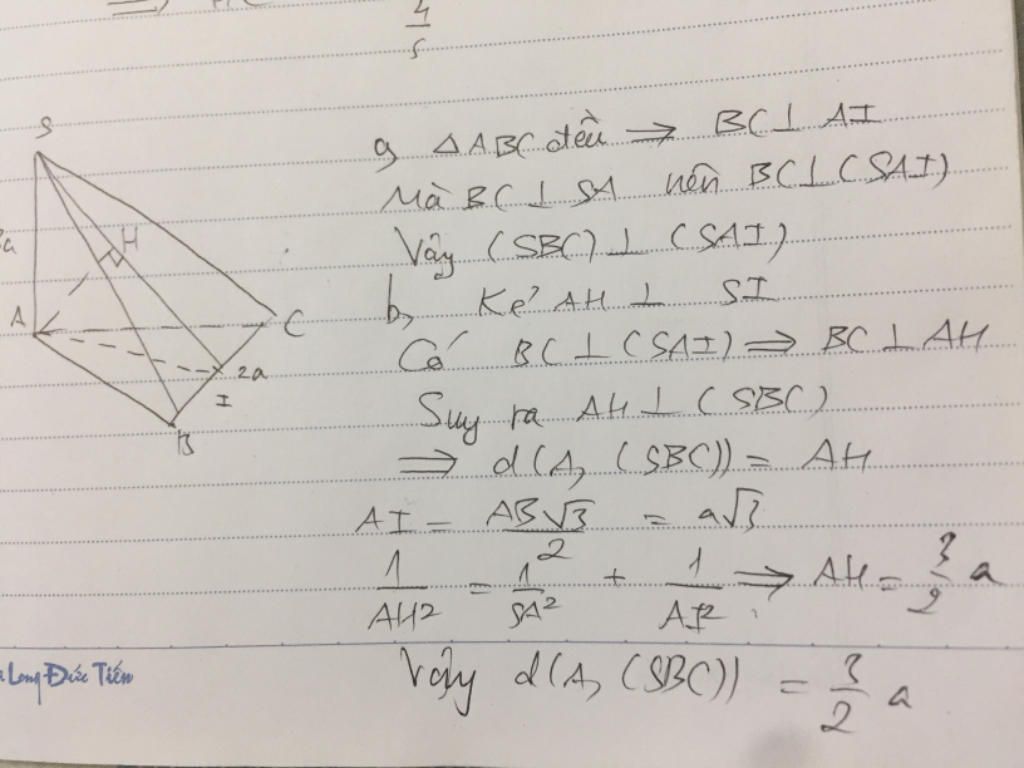 4
5
S
H
A
C
2a
I
B
a, ΔABC đều ⇒ BC ⊥ AI
Mà BC ⊥ SA nên BC ⊥ (SAI)
Vậy (SBC) ⊥ (SAI)
b, Kẻ AH ⊥ SI
Có BC ⊥ (SAI) ⇒ BC ⊥ AH
Suy ra AH ⊥ (SBC)
⇒ d(A, (SBC)) = AH
AI = AB√3/2 = a√3
1/AH² = 1/SA² + 1/AI² ⇒ AH = 3/2 a
Vậy d(A, (SBC)) = 3/2 a
Long Đức Tiến